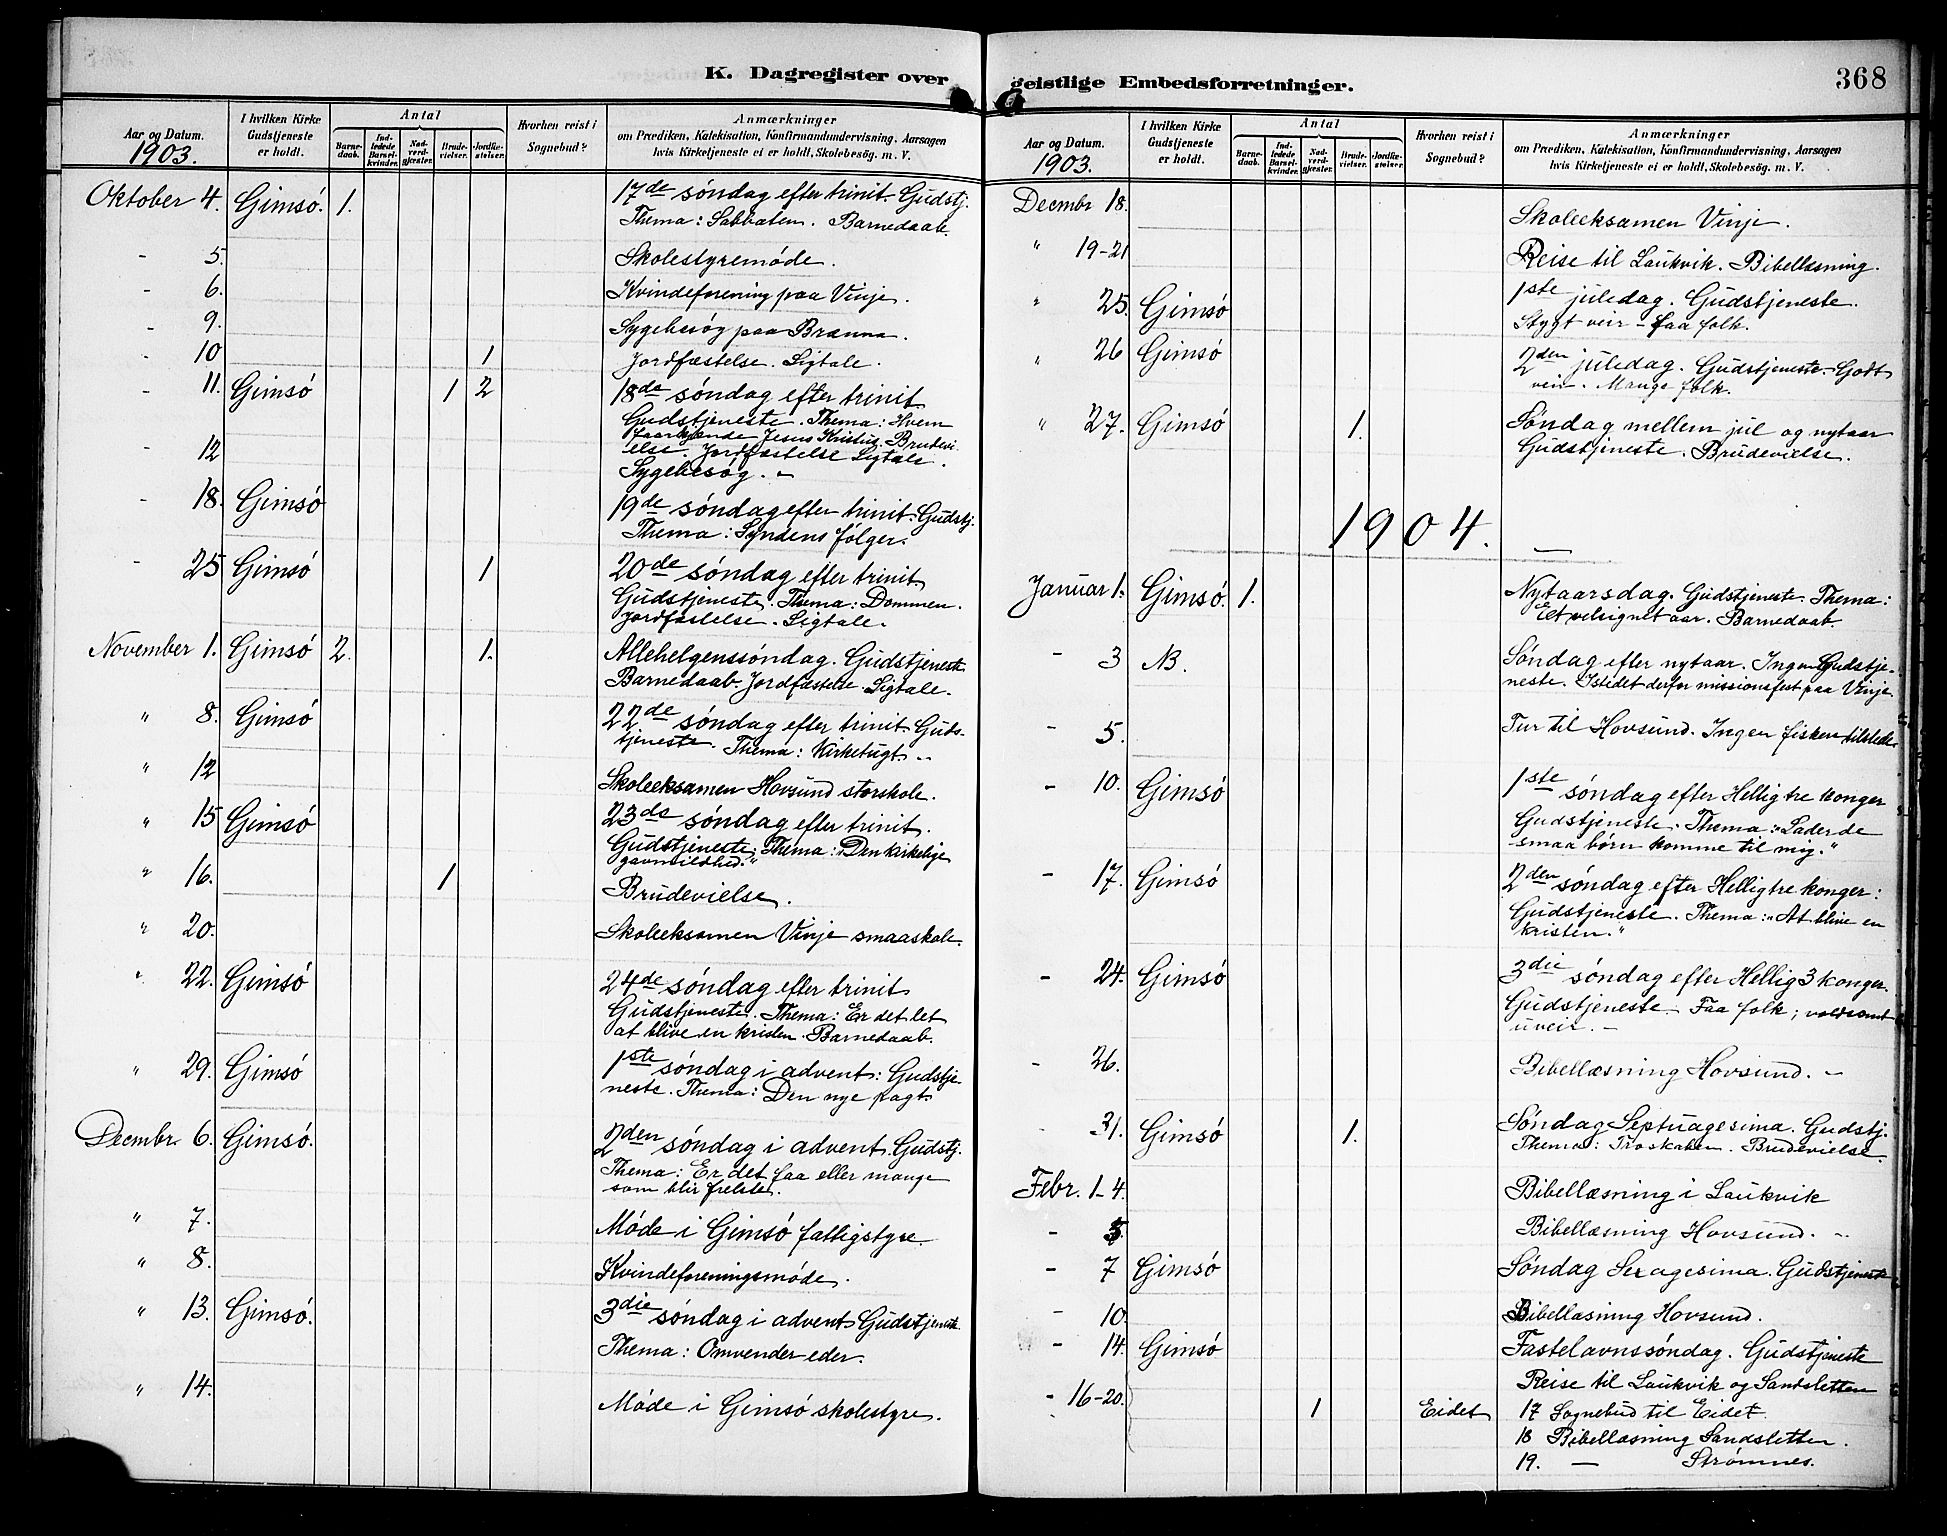 K. Dagregister over geistlige Embedsforretninger.
368
Aar og Datum.
1903.
I hvilken Kirke Gudstjeneste er holdt.
Antal
Barnedaab.
Indledede Barselkvinder.
Nadverdgjester.
Brudevielser.
Jordfæstelser.
Hvorhen reist i Sognebud?
Anmærkninger
om Prædiken, Katekisation, Konfirmandundervisning, Aarsagen
hvis Kirketjeneste ei er holdt, Skolebesøg. m. V.
Oktober 4. Gimsó. 1. 17de søndag efter trinit. Gudstj.
Thema: Sabbaten. Barnedaab.
- 5. Skolestyremóde.
- 6. Kvindeforening paa Vinje.
- 9. Sygebesóg paa Brenna.
- 10 1 Jordfæstelse. Ligtale.
- 11. Gimsó 1 2 18de søndag efter trinit
Gudstjeneste. Thema: Hvem
Jesus Kristus. Brudevi
else. Jordfæstelse Ligtale.
- 12 Sygebesóg. -
- 18. Gimsó 19de søndag efter trinit. Gudstj.
Thema: Syndens fólger.
- 25 Gimsó 1 20de søndag efter trinit
Gudstjeneste. Thema: Dommen.
Jordfæstelse. Ligtale.
November 1. Gimsó 2. 1. Allehelgenssóndag. Gudstjeneste
Barnedaab. Jordfæstelse. Ligtale.
" 8. Gimsó 22de søndag efter trinit. Guds-
tjeneste. Thema: Kirketugt -
" 12 Skoleeksamen Hovsund storskole.
" 15 Gimsó 23de søndag efter trinit.
Gudstjeneste. Thema: "Den kirkelige
gavmildhed."
" 16. 1 Brudevielse.
" 20. Skoleeksamen Vinje smaaskole.
" 22. Gimsó 24de søndag efter trinit
Gudstjeneste. Thema: Er det let
at blive en kristen. Barnedaab.
" 29. Gimsó 1ste søndag i advent: Gudstje
neste. Thema: Den nye pagt.
Decmbr. 6. Gimsó. 2den søndag i advent. Gudstj.
Thema: Er det faa eller mange
som blir frelste.
" 7. Móde i Gimsó fattigstyre.
" 8. Kvindeforeningsmóde.
" 13. Gimsó. 3die søndag i advent Gudstjeneste.
Thema: Omvender eder.
" 14. Móde i Gimsó skolestyre.
Aar og Datum.
1903.
I hvilken Kirke Gudstjeneste er holdt.
Antal
Barnedaab.
Indledede Barselkvinder.
Nadverdgjester.
Brudevielser.
Jordfæstelser.
Hvorhen reist i Sognebud?
Anmærkninger
om Prædiken, Katekisation, Konfirmandundervisning, Aarsagen
hvis Kirketjeneste ei er holdt, Skolebesøg. m. V.
Decmbr 18. Skoleeksamen Vinje.
" 19-21 Reise til Laukvik. Bibellæsning.
" 25. Gimsó 1ste juledag. Gudstjeneste.
Stygt veir - faa folk.
" 26 Gimsó 2den juledag. Gudstjeneste. Godt
veir. Mange folk.
" 27. Gimsó 1. Søndag mellem jul og nytaar
Gudstjeneste. Brudevielse.
1904.
Januar 1. Gimsó. 1. Nytaarsdag. Gudstjeneste. Thema:
Et velsignet aar. Barnedaab.
- 3 NB. Søndag efter nytaar. Ingen Gudstje-
neste. Istedet derfor missionsfest paa Vinje
- 5. Tur til Hovsund. Ingen fiskere tilstede.
- 10. Gimsó 1ste søndag efter Hellig tre konger
Gudstjeneste. Thema: "Lader de
smaa børn komme til mig."
- 17. Gimsó 2den søndag efter Hellig tre konger:
Gudstjeneste. Thema: "At blive en
kristen."
- 24. Gimsó 3die søndag efter Hellig 3 konger.
Gudstjeneste. Faa folk; voldsomt
uveir. -
- 26. Bibellæsning Hovsund. -
- 31. Gimsó 1. Søndag Septuagesima. Gudstj.
Thema: Troskaben. Brudevielse.
Febr. 1-4. Bibellæsning i Laukvik
- 5. Bibellæsning Hovsund. -
- 7 Gimsó Søndag Sexagesima. Gudstjeneste
- 10. Bibellæsning Hovsund.
- 14. Gimsó Fastelavnssóndag. Gudstjeneste
- 16-20. Reise til Laukvik og Sandsletten
1 Eidet 17 Sognebud til Eidet.
18 Bibellæsning Sandsletten.
19. — Strømnes.